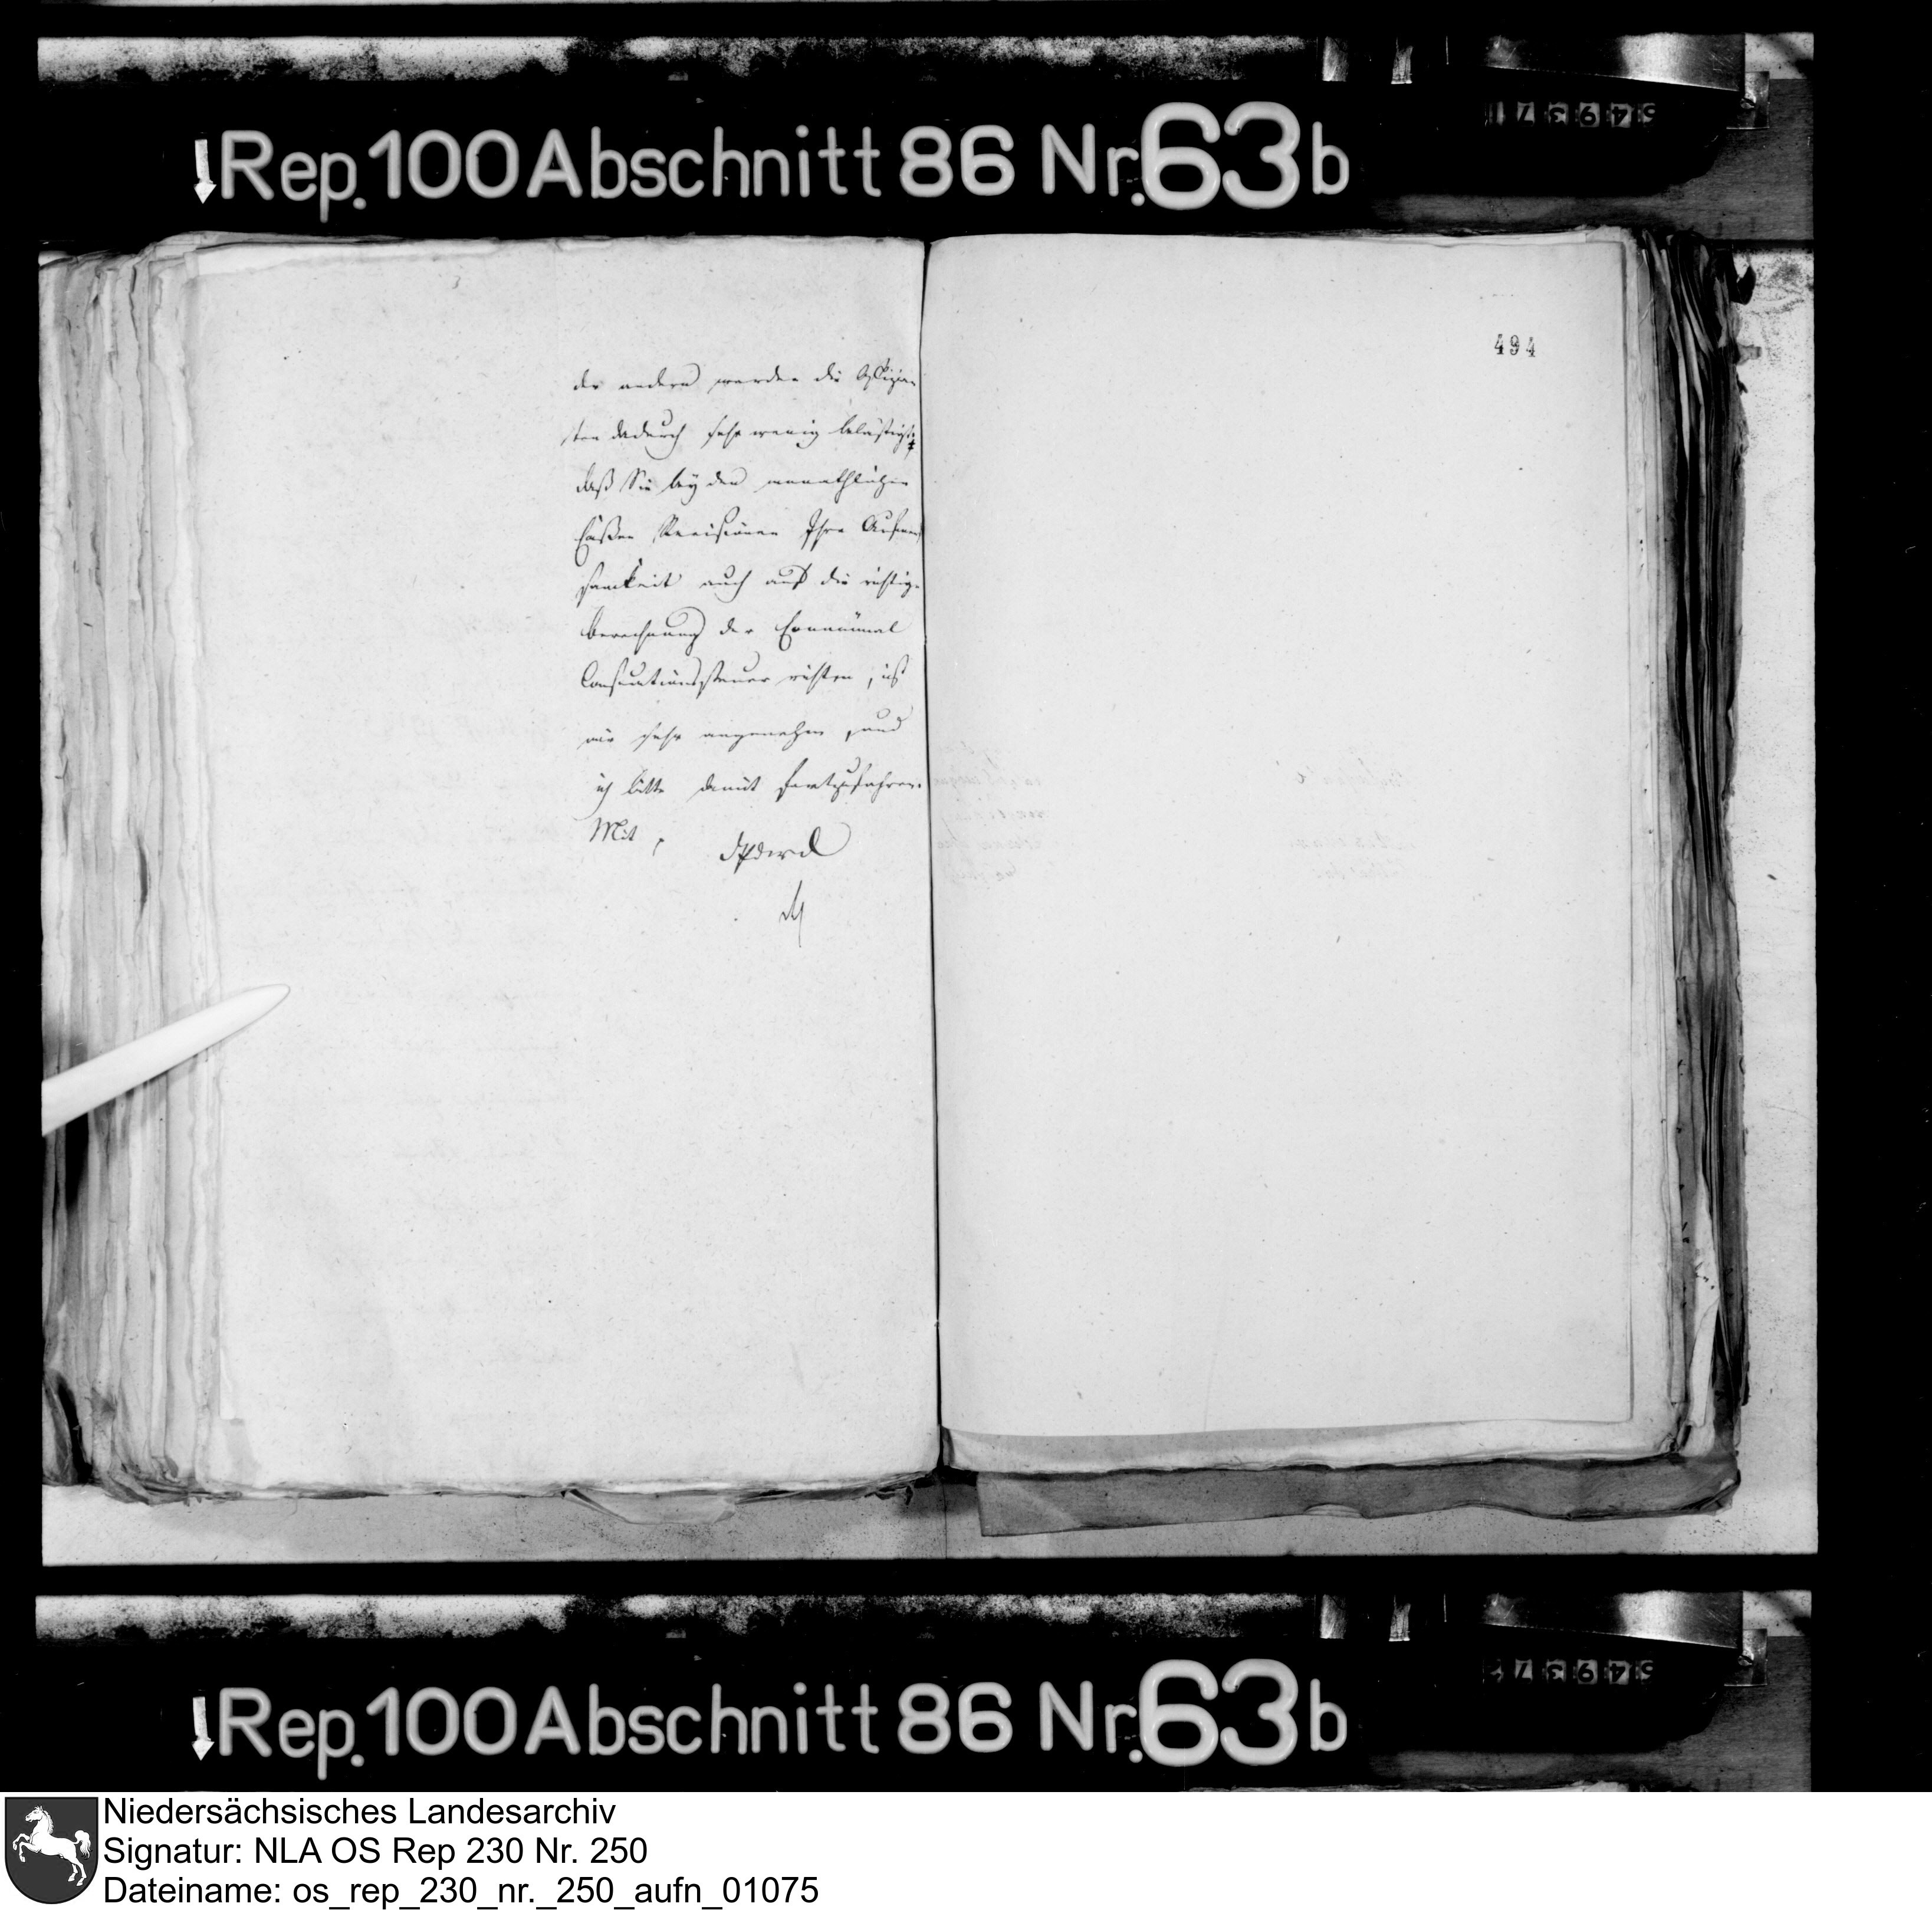 Rep. 100 Abschnitt 86 Nr. 63 b
494
der andern werden die Offizian
ten dadurch sehr wenig belästigt.
daß Sie bey den monathlichen
Caßen Revisionen Ihre Aufmerk
samkeit auch auf die richtige
berechnung der Communal
steuer richten, ist
mir sehr angenehm, und
ich bitte damit fortzufahren.
Mit
Rep. 100 Abschnitt 86 Nr. 63 b
Niedersächsisches Landesarchiv
Signatur: NLA OS Rep 230 Nr. 250
Dateiname: os_rep_230_nr._250_aufn_01075